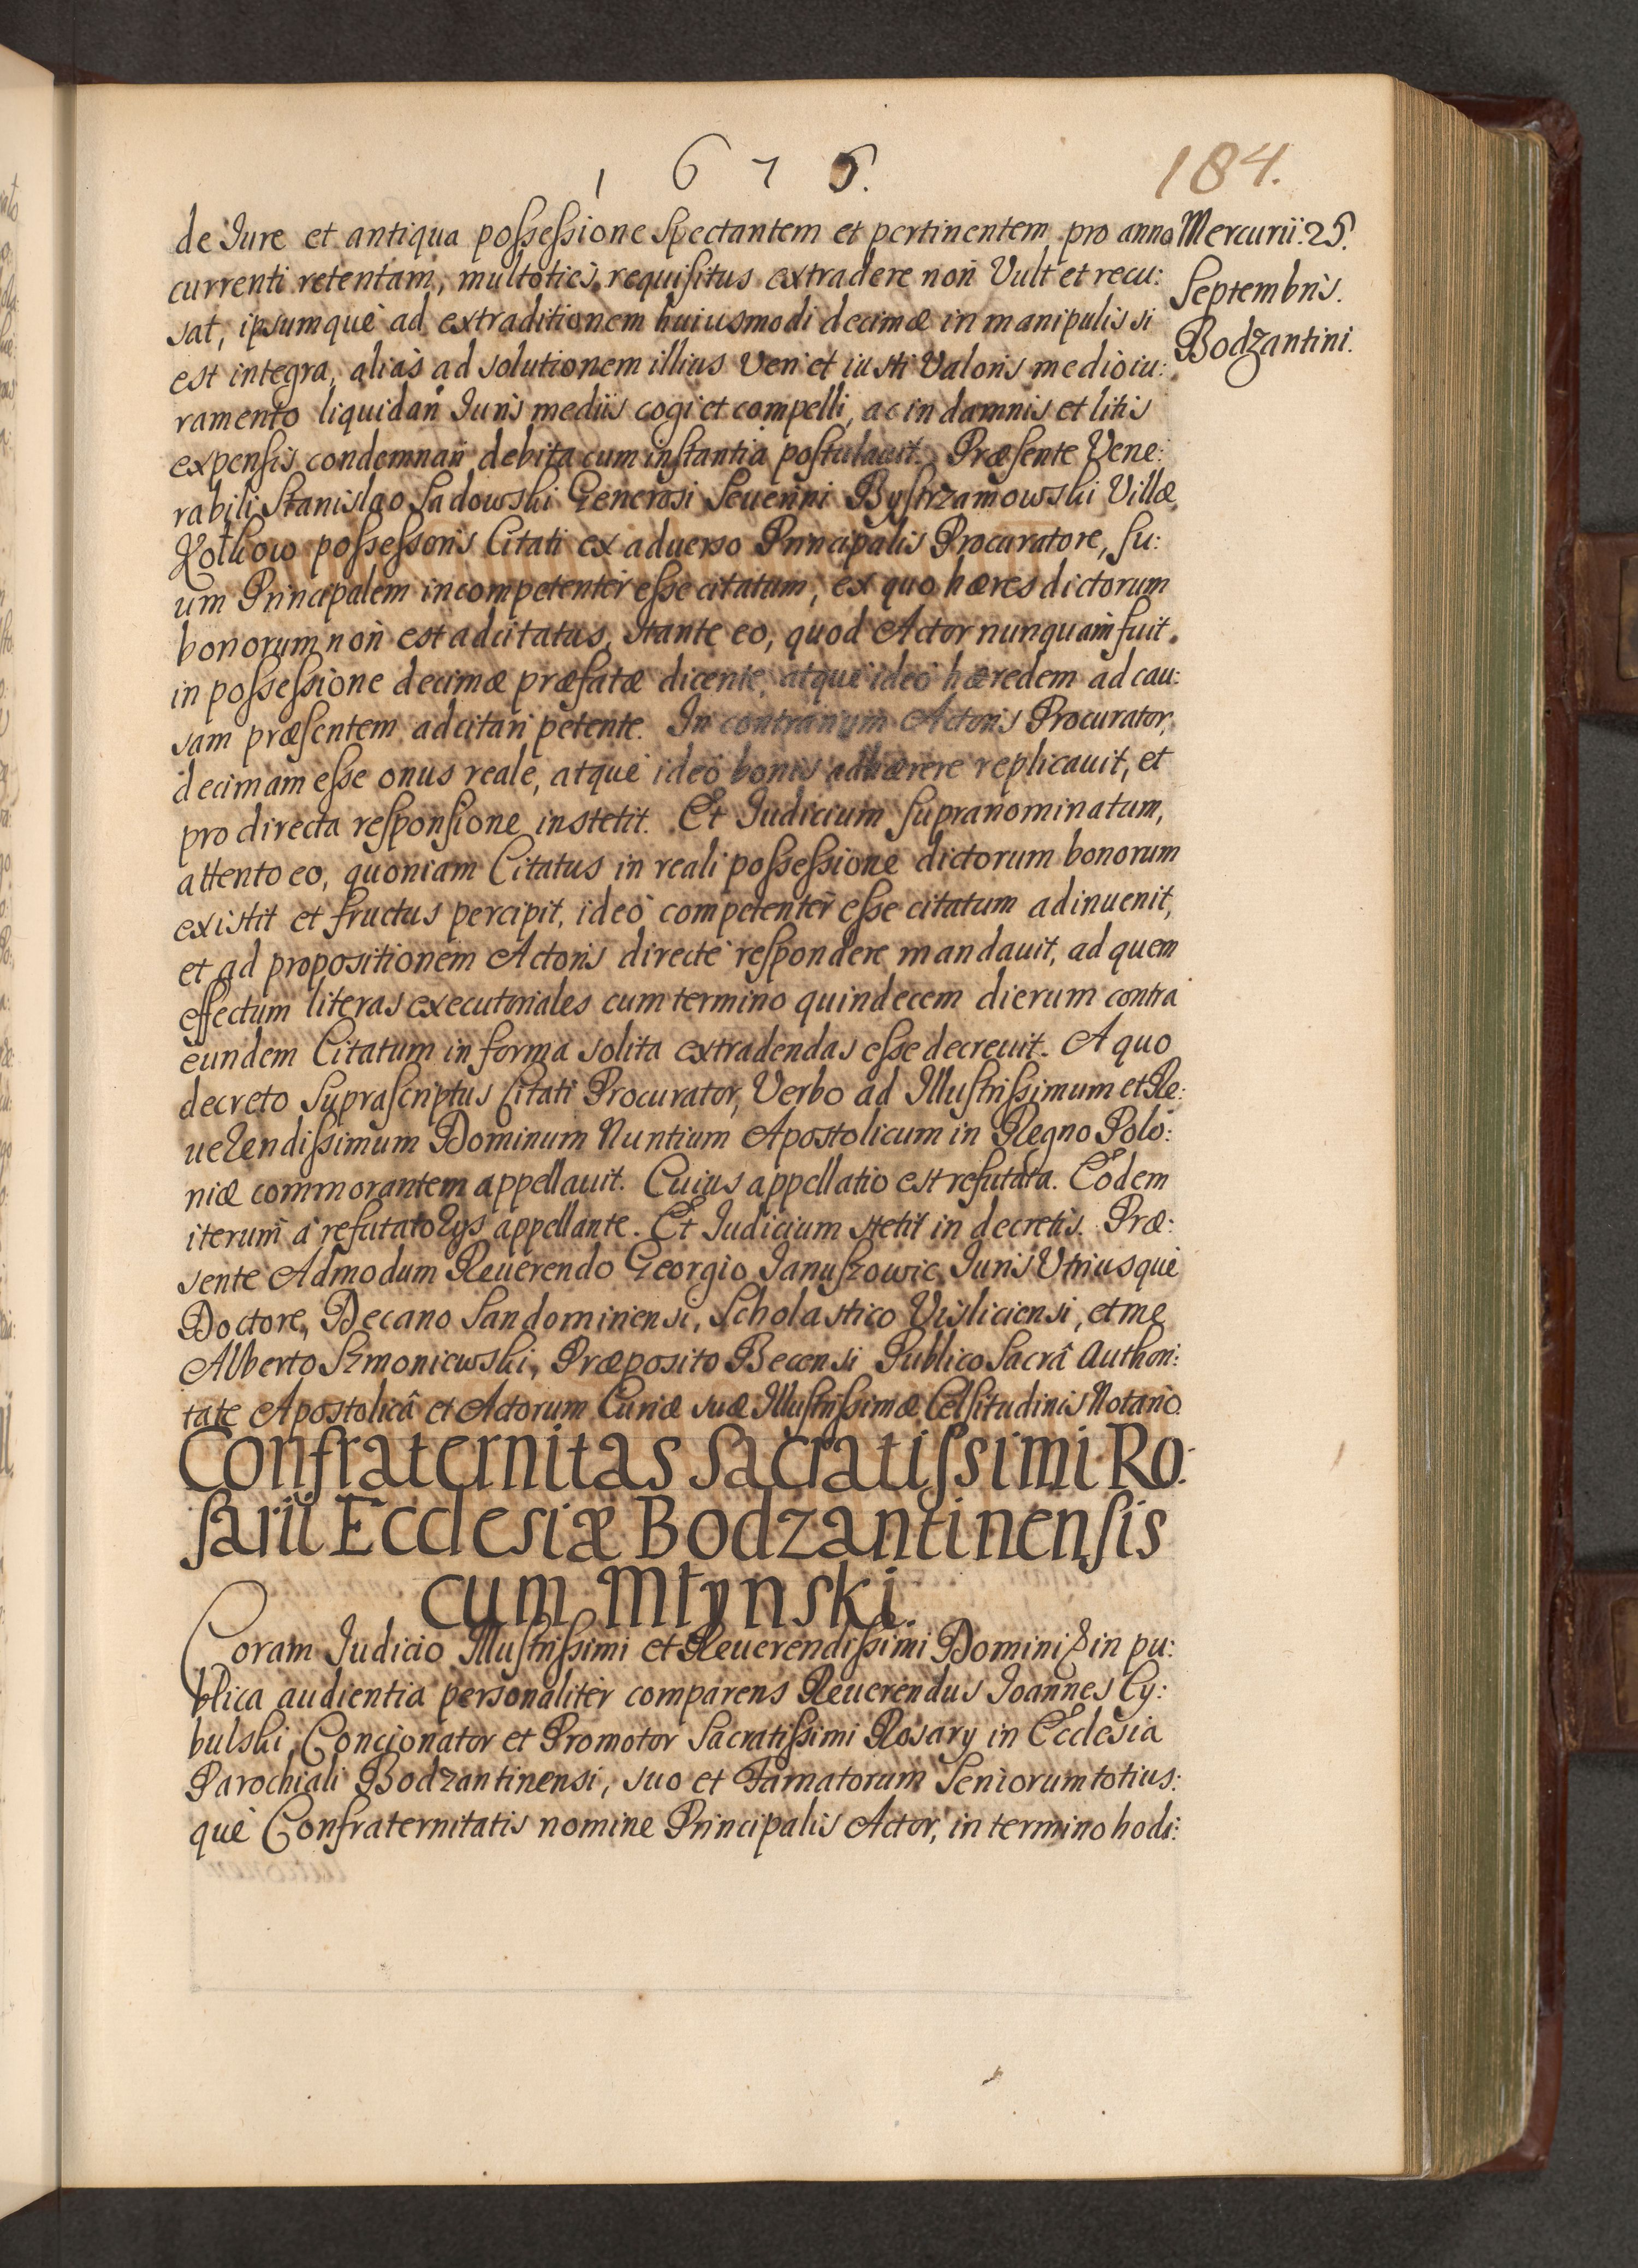 1 6 7 5.
184.
de Iure et antiqua possessione spectantem et pertinentem pro anno
Mercurii. 25.
Septembris.
Bodzantini.
currenti retentam, multoties requisitus extradere non Vult et recu:
sat, ipsumque ad extraditionem huiusmodi decimæ in manipulis si
est integra, alias ad solutionem illius Veri et iusti Valoris medio iu:
ramento liquidari Iuris mediis cogi et compelli, ac in damnis et litis
expensis condemnari debita cum instantia postulauit. Præsente Vene:
rabili Stanislao Sadowski Generosi Seuerini Bystrzamowski Villæ
Kotkow possessoris Citati ex aduerso Principalis Procuratore, su:
um Principalem incompetenter esse citatum, ex quo hæres dictorum
bonorum non est adcitatus, stante eo, quod Actor nunquam fuit
in possessione decimæ præfatæ dicente, atque ideo hæredem ad cau:
sam præsentem adcitari petente. In contrarium Actoris Procurator,
decimam esse onus reale, atque ideo bonis adhærere replicauit, et
pro directa responsione institit. Et Iudicium supranominatum,
attento eo, quoniam Citatus in reali possessione dictorum bonorum
existit et fructus percipit, ideo competenter esse citatum adinuenit,
et ad propositionem Actoris directe respondere mandauit, ad quem
effectum literas executoriales cum termino quindecem dierum contra
eundem Citatum in forma solita extradendas esse decreuit. A quo
decreto suprascriptus Citati Procurator, Verbo ad Illustrissimum et Re:
uerendissimum Dominum Nuntium Apostolicum in Regno Polo:
niæ commorantem appellauit. Cuius appellatio est refutata. Eodem
iterum a refutatorys appellante. Et Iudicium stetit in decretis. Præ:
sente Admodum Reuerendo Georgio Januszowic, Iuris Utriusque
Doctore, Decano Sandomiriensi, Scholastico Visliciensi, et me
Alberto Szmoniewski, Præposito Becensi Publico Sacrâ Authori:
tate Apostolicâ et Actorum Curiæ suæ Illustrissimæ Celsitudinis Notario.
Confraternitas Sacratissimi Ro:
sarii Ecclesiæ Bodzantinensis
cum Młynski.
Coram Iudicio Illustrissimi et Reuerendissimi Domini in pu:
blica audientia personaliter comparens Reuerendus Joannes Cy:
bulski, Concionator et Promotor Sacratissimi Rosary in Ecclesia
Parochiali Bodzantinensi, suo et Famatorum Seniorum totius:
que Confraternitatis nomine Principalis Actor, in termino hodi: